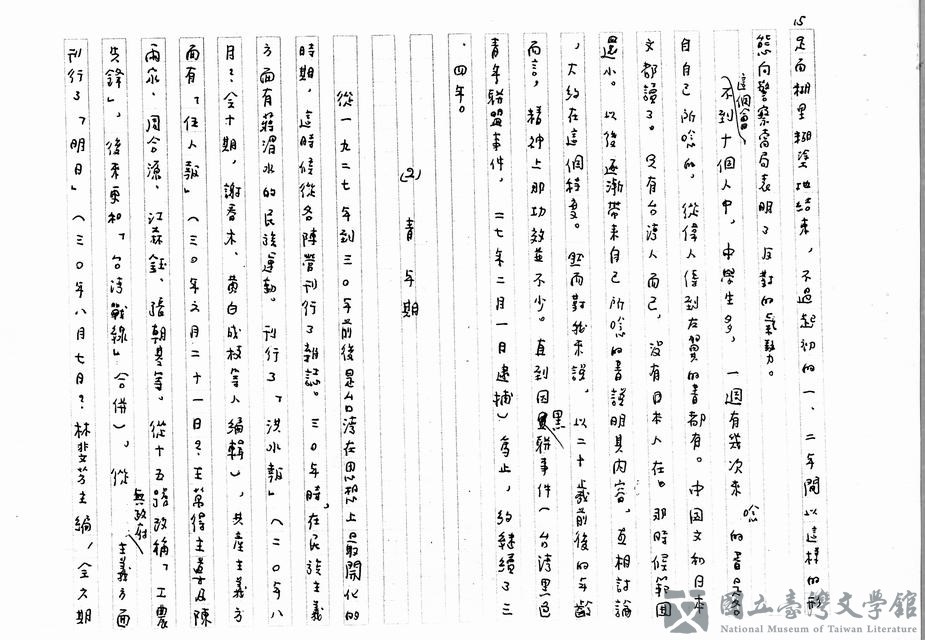 15
是而糊里糊塗地結束，不過起初的一、二年間以這樣的形
態向警察當局表明了反對的氣勢力。
這個會不到十個人中，中學生多，一週有幾次來唸的書是各
自自己所唸的，從偉人傳到左翼的書都有。中国文和日本
文都讀了。只有台湾人而已，沒有日本人在。那時候範圍
還小。以後逐漸帶來自己所唸的書說明其內容，互相討論
，大約在這個程度。然而對我來說，以二十歲前後的年齡
而言，精神上那功效並不少。直到因黑聯事件（台湾黑色
青年聯盟事件，二七年二月一日逮捕）為止，約継續了三
、四年。
(2) 青年期
從一九二七年到三〇年前後是台湾在思想上最開化的
時期，這時候從各陣營刊行了雜誌。三〇年時，在民族主義
方面有蔣渭水的民族運動。刊行了「洪水報」（二〇年八
月？全十期，謝春木、黃白成枝等人編輯），共產主義方
面有「伍人報」（三〇年六月二十一日？王萬得主導及陳
兩家、周合源、江森鈺、張朝基等。從十五號改稱「工農
先鋒」，後來更和「台湾戰線」合併），從無政府主義方面
刊行了「明日」（三〇年八月七日？林斐芳主編，全六期
國立臺灣文學館
National Museum of Taiwan Literature